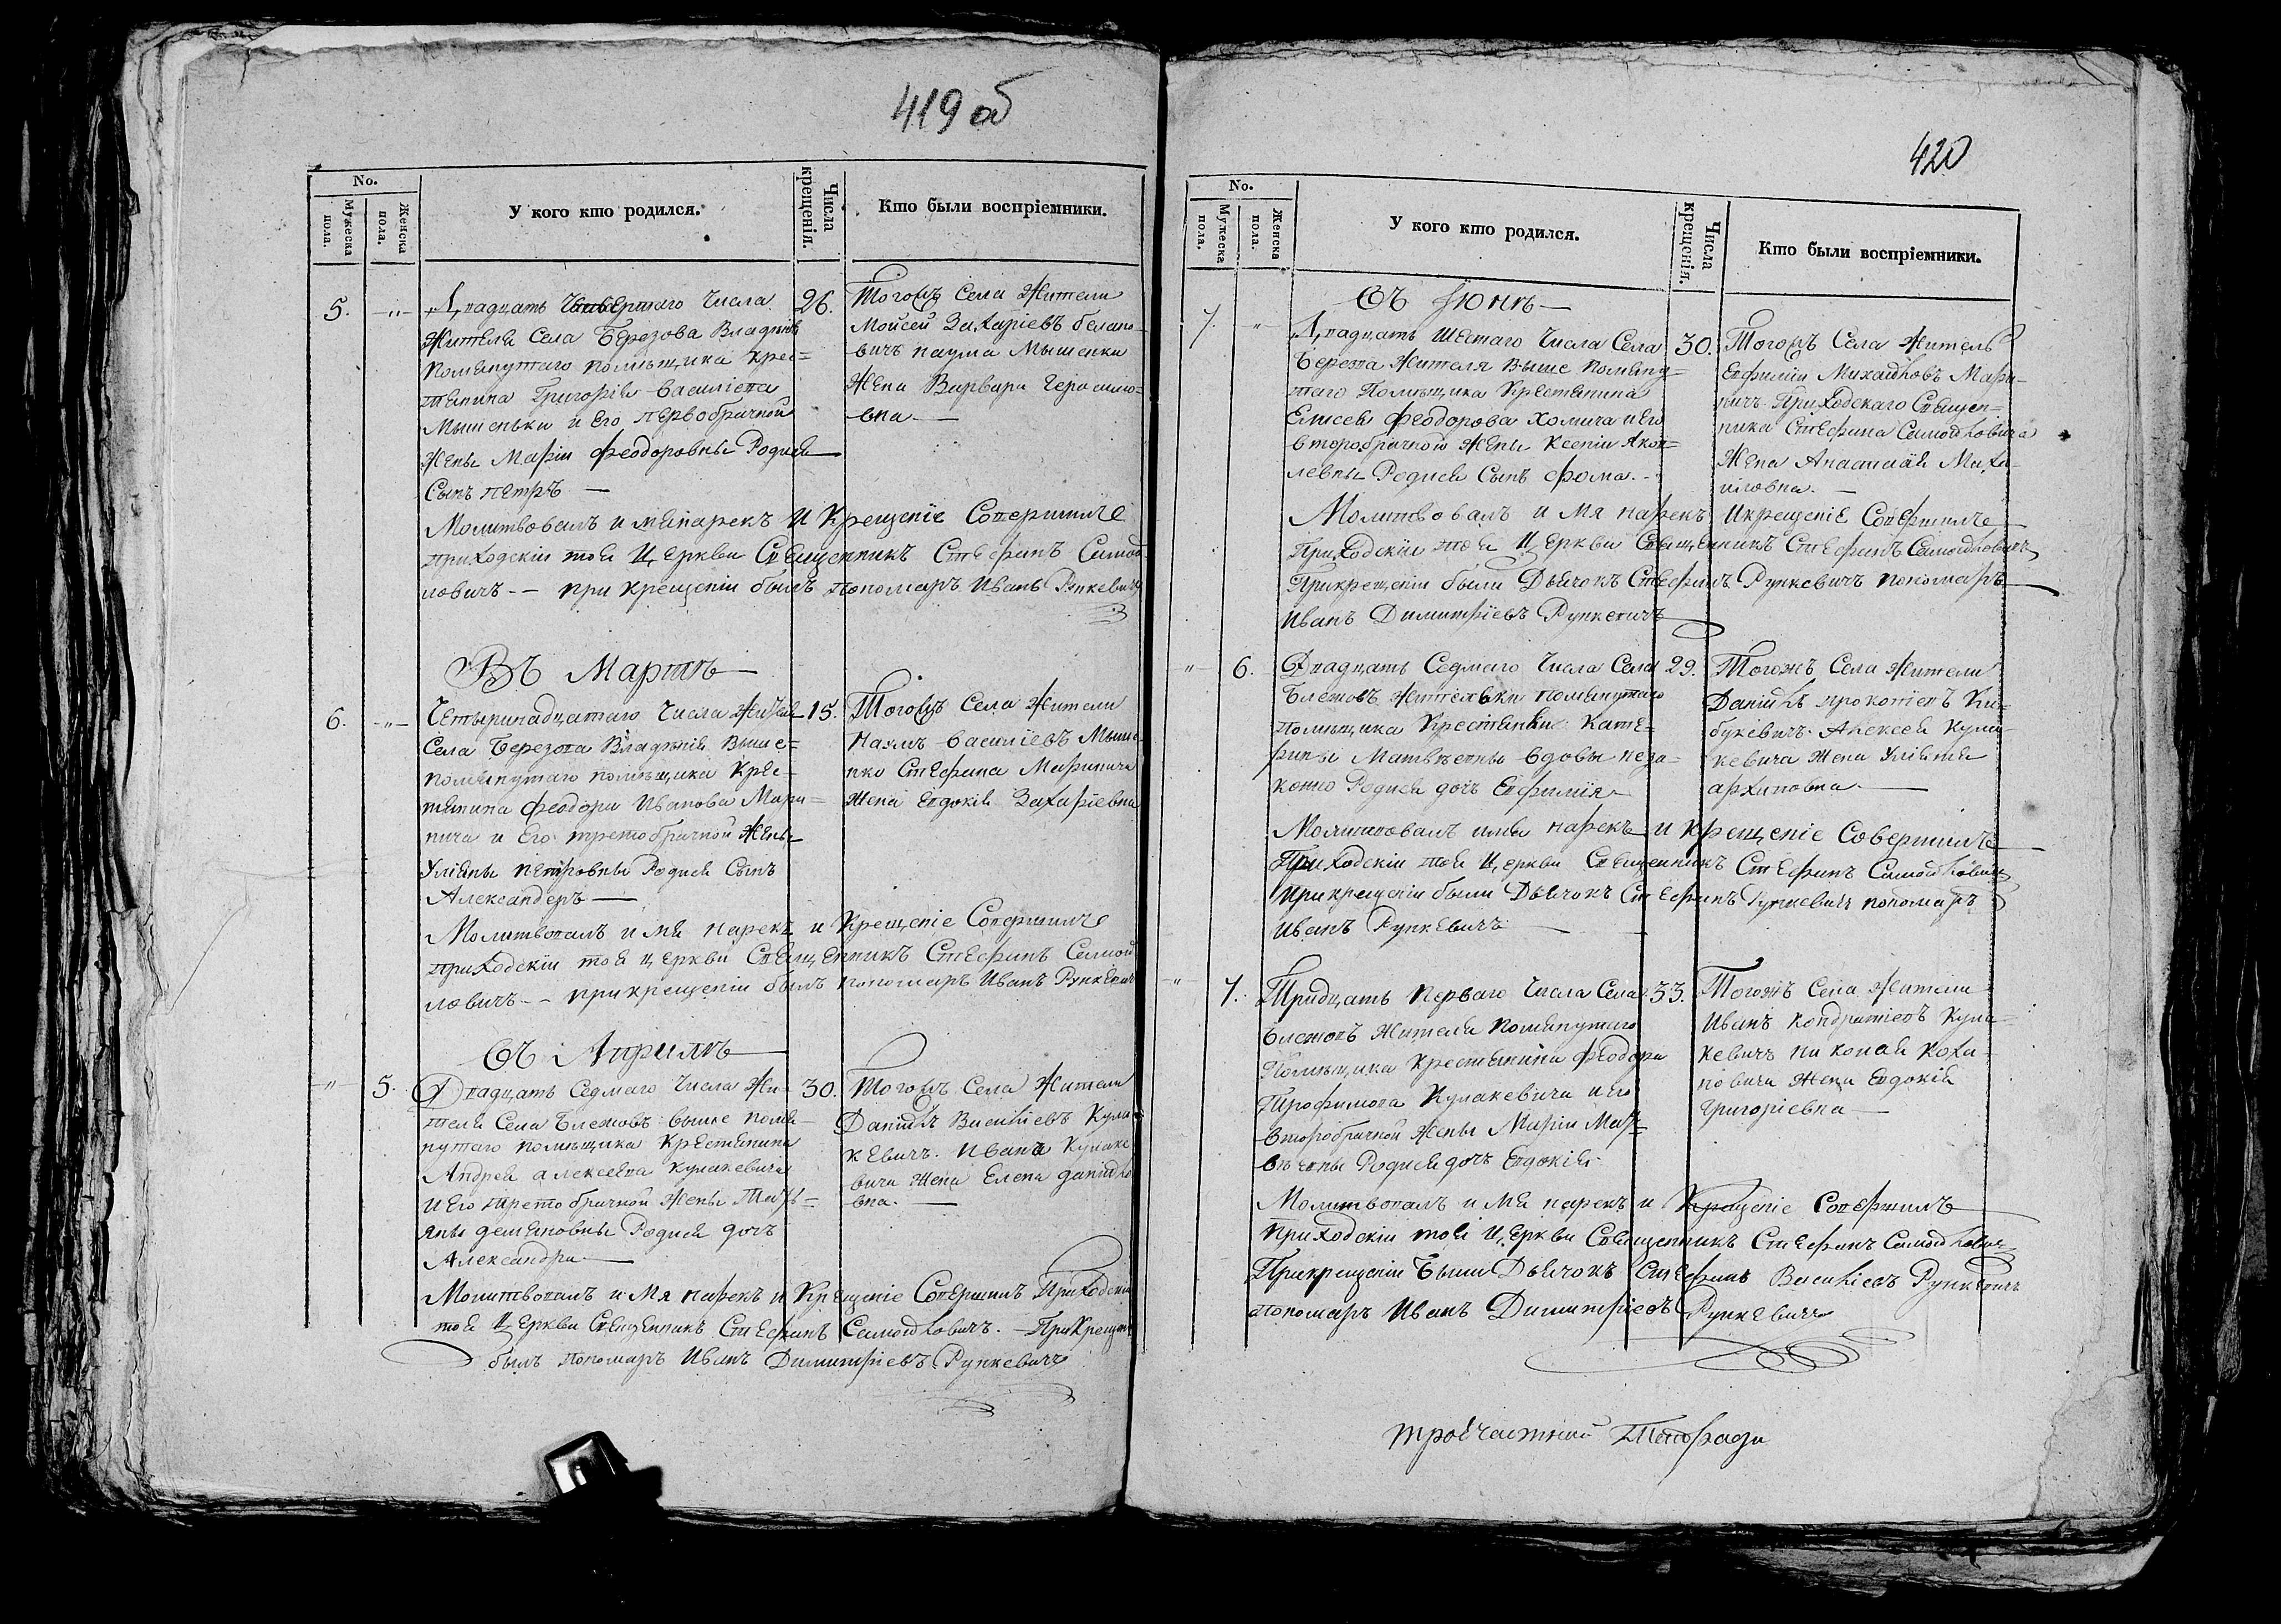 419 об
No.
Мужеска пола.
Женска пола.
У кого кто родился.
Числа крещенія.
Кто были воспріемники.
5. -„- Двадцать Четвертаго Числа
Жителя Села Березова Владѣнія
помянутаго помѣщика крес=
тянина Григорія Василіева
Мышеньки и Его первобрачной
Жены Маріи Феодоровны Родися
Сынъ петръ —
26.
Тогожъ Села Жители
Мойсей Захаріевъ
вичъ наума Мышенки
Жена Варвара Герасимо=
вна. —
Молитвовалъ и мя нарекъ И Крещеніе Совершилъ
приходскіи тоя Церкви Священникъ Стефанъ Самой
ловичъ -- при Крещеніи былъ Пономарь Иванъ Рункевичъ
Въ Мартѣ
6. -„- Четыринадцатаго Числа Жителя
Села Березова Владѣнія Выше=
помянутаго помѣщика Крес=
тянина Феодора Иванова Мари=
нича и Его третобрачной Жены
Уліяны Петровны Родися Сынъ
Александеръ —
15.
Тогожъ Села Жители
Наумъ Василіевъ Мыше
нко Стефана Маринича
Жена Евдокія Захаріевна
Молитвовалъ и мя нарекъ и Крещеніе Совершилъ
приходскіи тоя церкви Священникъ Стефанъ Самой
ловичъ -- при крещеніи былъ пономарь Иванъ Рункевичъ
Въ Априлѣ
„ 5. Двадцать Седмаго Числа Жи-
теля Села Блежовъ выше помя
нутаго помѣщика Крестянина
Андрея Алексеева Кулакевича
и Его третобрачной Жены Тать=
яны демяновны Родися дочь
Александра —
30.
Тогожъ Села Жители
Даніилъ Василіевъ Кула
кевичъ. Ивана Кулаке
вича Жена Елена даніило
вна. —
Молитвовалъ и Мя нарекъ и Крещеніе Совершилъ Приходскіи
тоя Церкви Священникъ Стефанъ Самойловичъ. — При Крещеніи
былъ Пономарь Иванъ Димитріевъ Рункевичъ
420
No.
Мужеска пола.
Женска пола.
У кого кто родился.
Числа крещенія.
Кто были воспріемники.
Въ Юнѣ —
7. „ Двадцать Шестаго Числа Села
Березова Жителя Выше Помяну=
таго Помѣщика Крестянина
Елисея Феодорова Хомича и Его
второбрачной Жены Ксеніи Яков=
левны Родися Сынъ Фома. --
30.
Тогожъ Села Житель
Евфилій Михайловъ Мари-
ничъ. Приходскаго Священ=
ника Стефана Самойловича
Жена Анастасія Миха
иловна. —
Молитвовалъ и Мя Нарекъ И крещеніе Совершилъ
Приходскіи тоя Церкви Священникъ Стефанъ Самойловичъ
При крещеніи были Дьячокъ Стефанъ Рункевичъ пономарь
Иванъ Димитріевъ Рункевичъ
„ 6. Двадцать Седмаго Числа Села
Блежовъ Жителки помянутаго
помѣщика Крестянки Кате=
рины Матвѣевны вдовы неза=
конно Родися дочь Евфимія
29.
Тогожъ Села Жители
Даніилъ прокопіевъ Ки-
букевичъ. Алексея Кула-
кевича Жена Уліяна
архиповна. —
Молитвовалъ имя нарекъ и Крещеніе Совершилъ
Приходскіи тоя Церкви Священникъ Стефанъ Самойловичъ
При крещеніи были Дьячокъ Стефанъ Рункевичъ пономарь
Иванъ Рункевичъ —
„ 7. Тридцать Перваго Числа Села
Блежовъ Жителя Помянутаго
Помѣщика крестянина Феодора
Трофимова Кулакевича и его
второбрачной Жены Маріи Мат=
вѣевны Родися дочь Евдокія
33.
Тогожъ Села Жители
Иванъ Кондратіевъ Кула-
кевичъ Николая Коха
новича Жена Евдокія
Григоріевна —
Молитвовалъ и Мя нарекъ и Крещеніе Совершилъ
Приходскіи тоя Церкви Священникъ Стефанъ Самойлович
При крещеніи Были Дьячокъ Стефанъ Василіевъ Рункевичъ
пономарь Иванъ Димитріевъ Рункевичъ